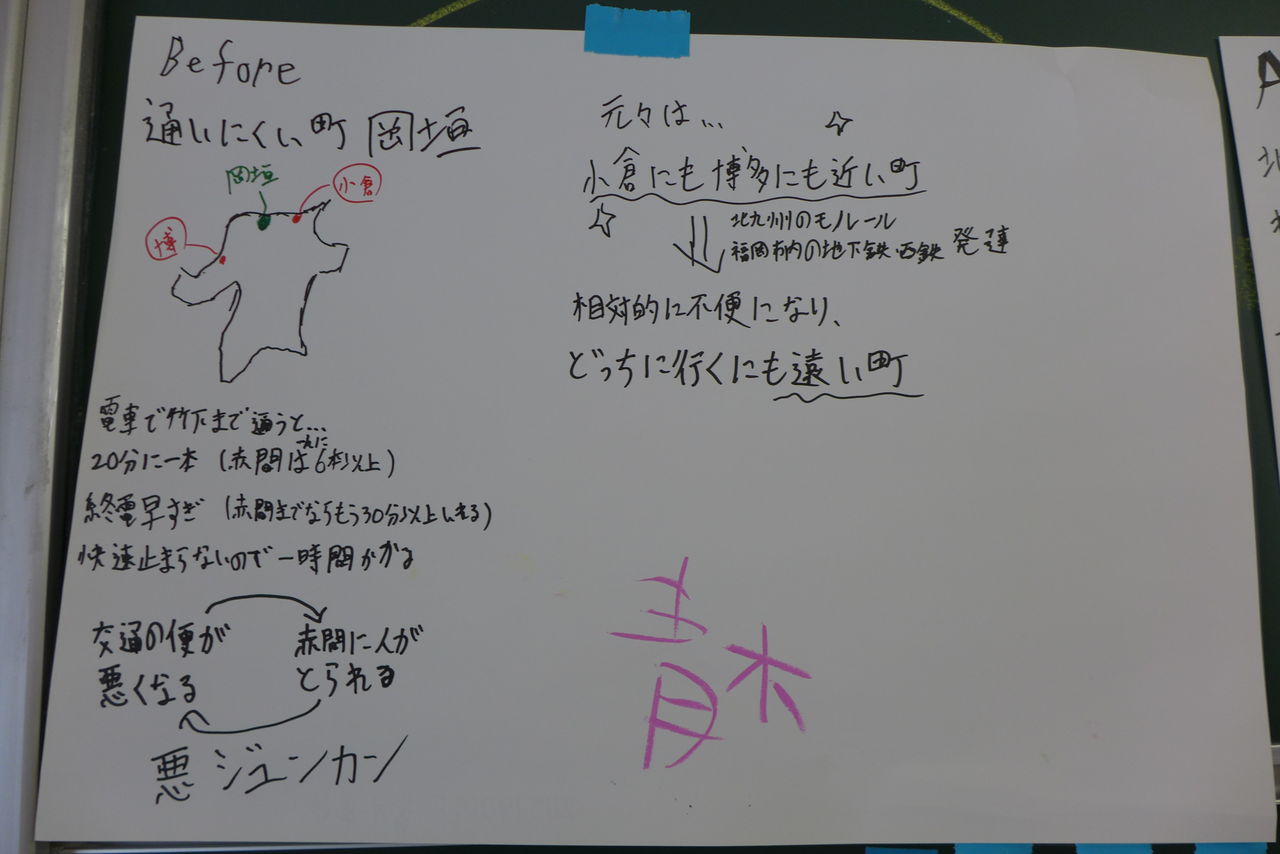 Before
通いにくい町 岡垣
岡垣
小倉
博
電車で竹下まで通うと...
20分に一本 (赤間は 6本以上)
終電早すぎ (赤間までならもう30分以上いける)
快速止まらないので一時間かかる
交通の便が
悪くなる
赤間に人が
とられる
悪ジュンカン
元々は...
☆
小倉にも博多にも近い町
☆
北九州のモノルール
福岡市内の地下鉄・西鉄 発達
相対的に不便になり、
どっちに行くにも遠い町
青木
A
北